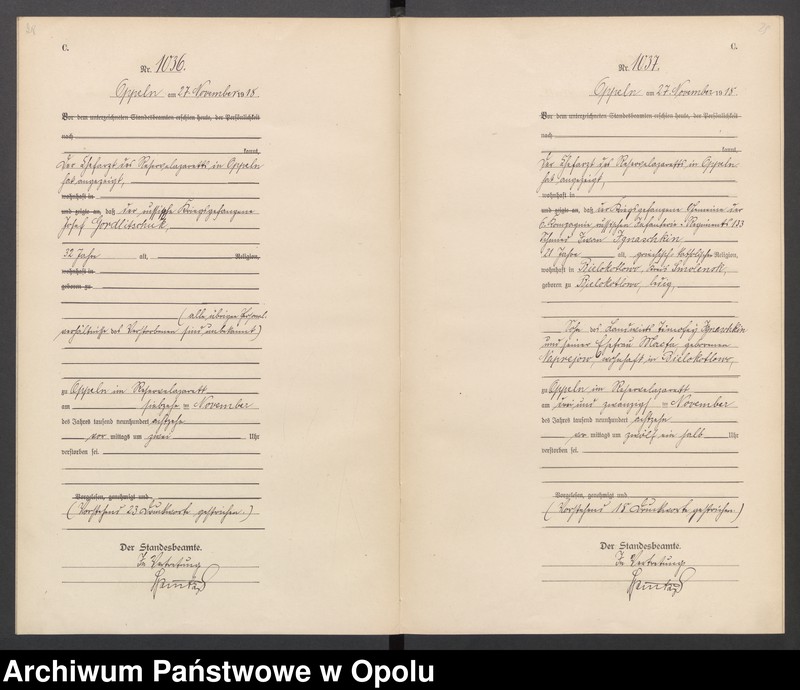 C.
Nr. 1036.
Oppeln am 27. November 1918.
Vor dem unterzeichneten Standesbeamten erschien heute, der Persönlichkeit
nach
kannt,
Der Chefarzt des Reservelazaretts in Oppeln
hat angezeigt,
wohnhaft in
und zeigte an, daß der russische Kriegsgefangene
Josef Gordlitschuk,
32 Jahre alt, Religion,
wohnhaft in
geboren zu
(alle übrigen Personal-
verhältnisse des Verstorbenen sind unbekannt)
zu Oppeln im Reservelazarett
am siebzehn ten November
des Jahres tausend neunhundert achtzehn
vor mittags um zwei Uhr
verstorben sei.
Vorgelesen, genehmigt und
(Vorstehend 23 Druckworte gestrichen.)
Der Standesbeamte.
In Vertretung
C.
Nr. 1037.
Oppeln am 27. November 1918.
Vor dem unterzeichneten Standesbeamten erschien heute, der Persönlichkeit
nach
kannt,
Der Chefarzt des Reservelazaretts in Oppeln
hat angezeigt,
wohnhaft in
und zeigte an, daß der Kriegsgefangene Gemeine der
6. Kompagnie russischen Infanterie-Regiments 183
Schmied Iwan Ignaschkin
21 Jahre alt, griechisch-katholischer Religion,
wohnhaft in Bielokotlowo, Kreis Smolensk,
geboren zu Bielokotlowo, ledig,
Sohn des Landwirts Timofey Ignaschkin
und seiner Ehefrau Marfa geborenen
wohnhaft in Bielokotlowo,
zu Oppeln im Reservelazarett
am ein und zwanzigst ten November
des Jahres tausend neunhundert achtzehn
vor mittags um zwölf ein halb Uhr
verstorben sei.
Vorgelesen, genehmigt und
(Vorstehend 15 Druckworte gestrichen.)
Der Standesbeamte.
In Vertretung
Archiwum Państwowe w Opolu